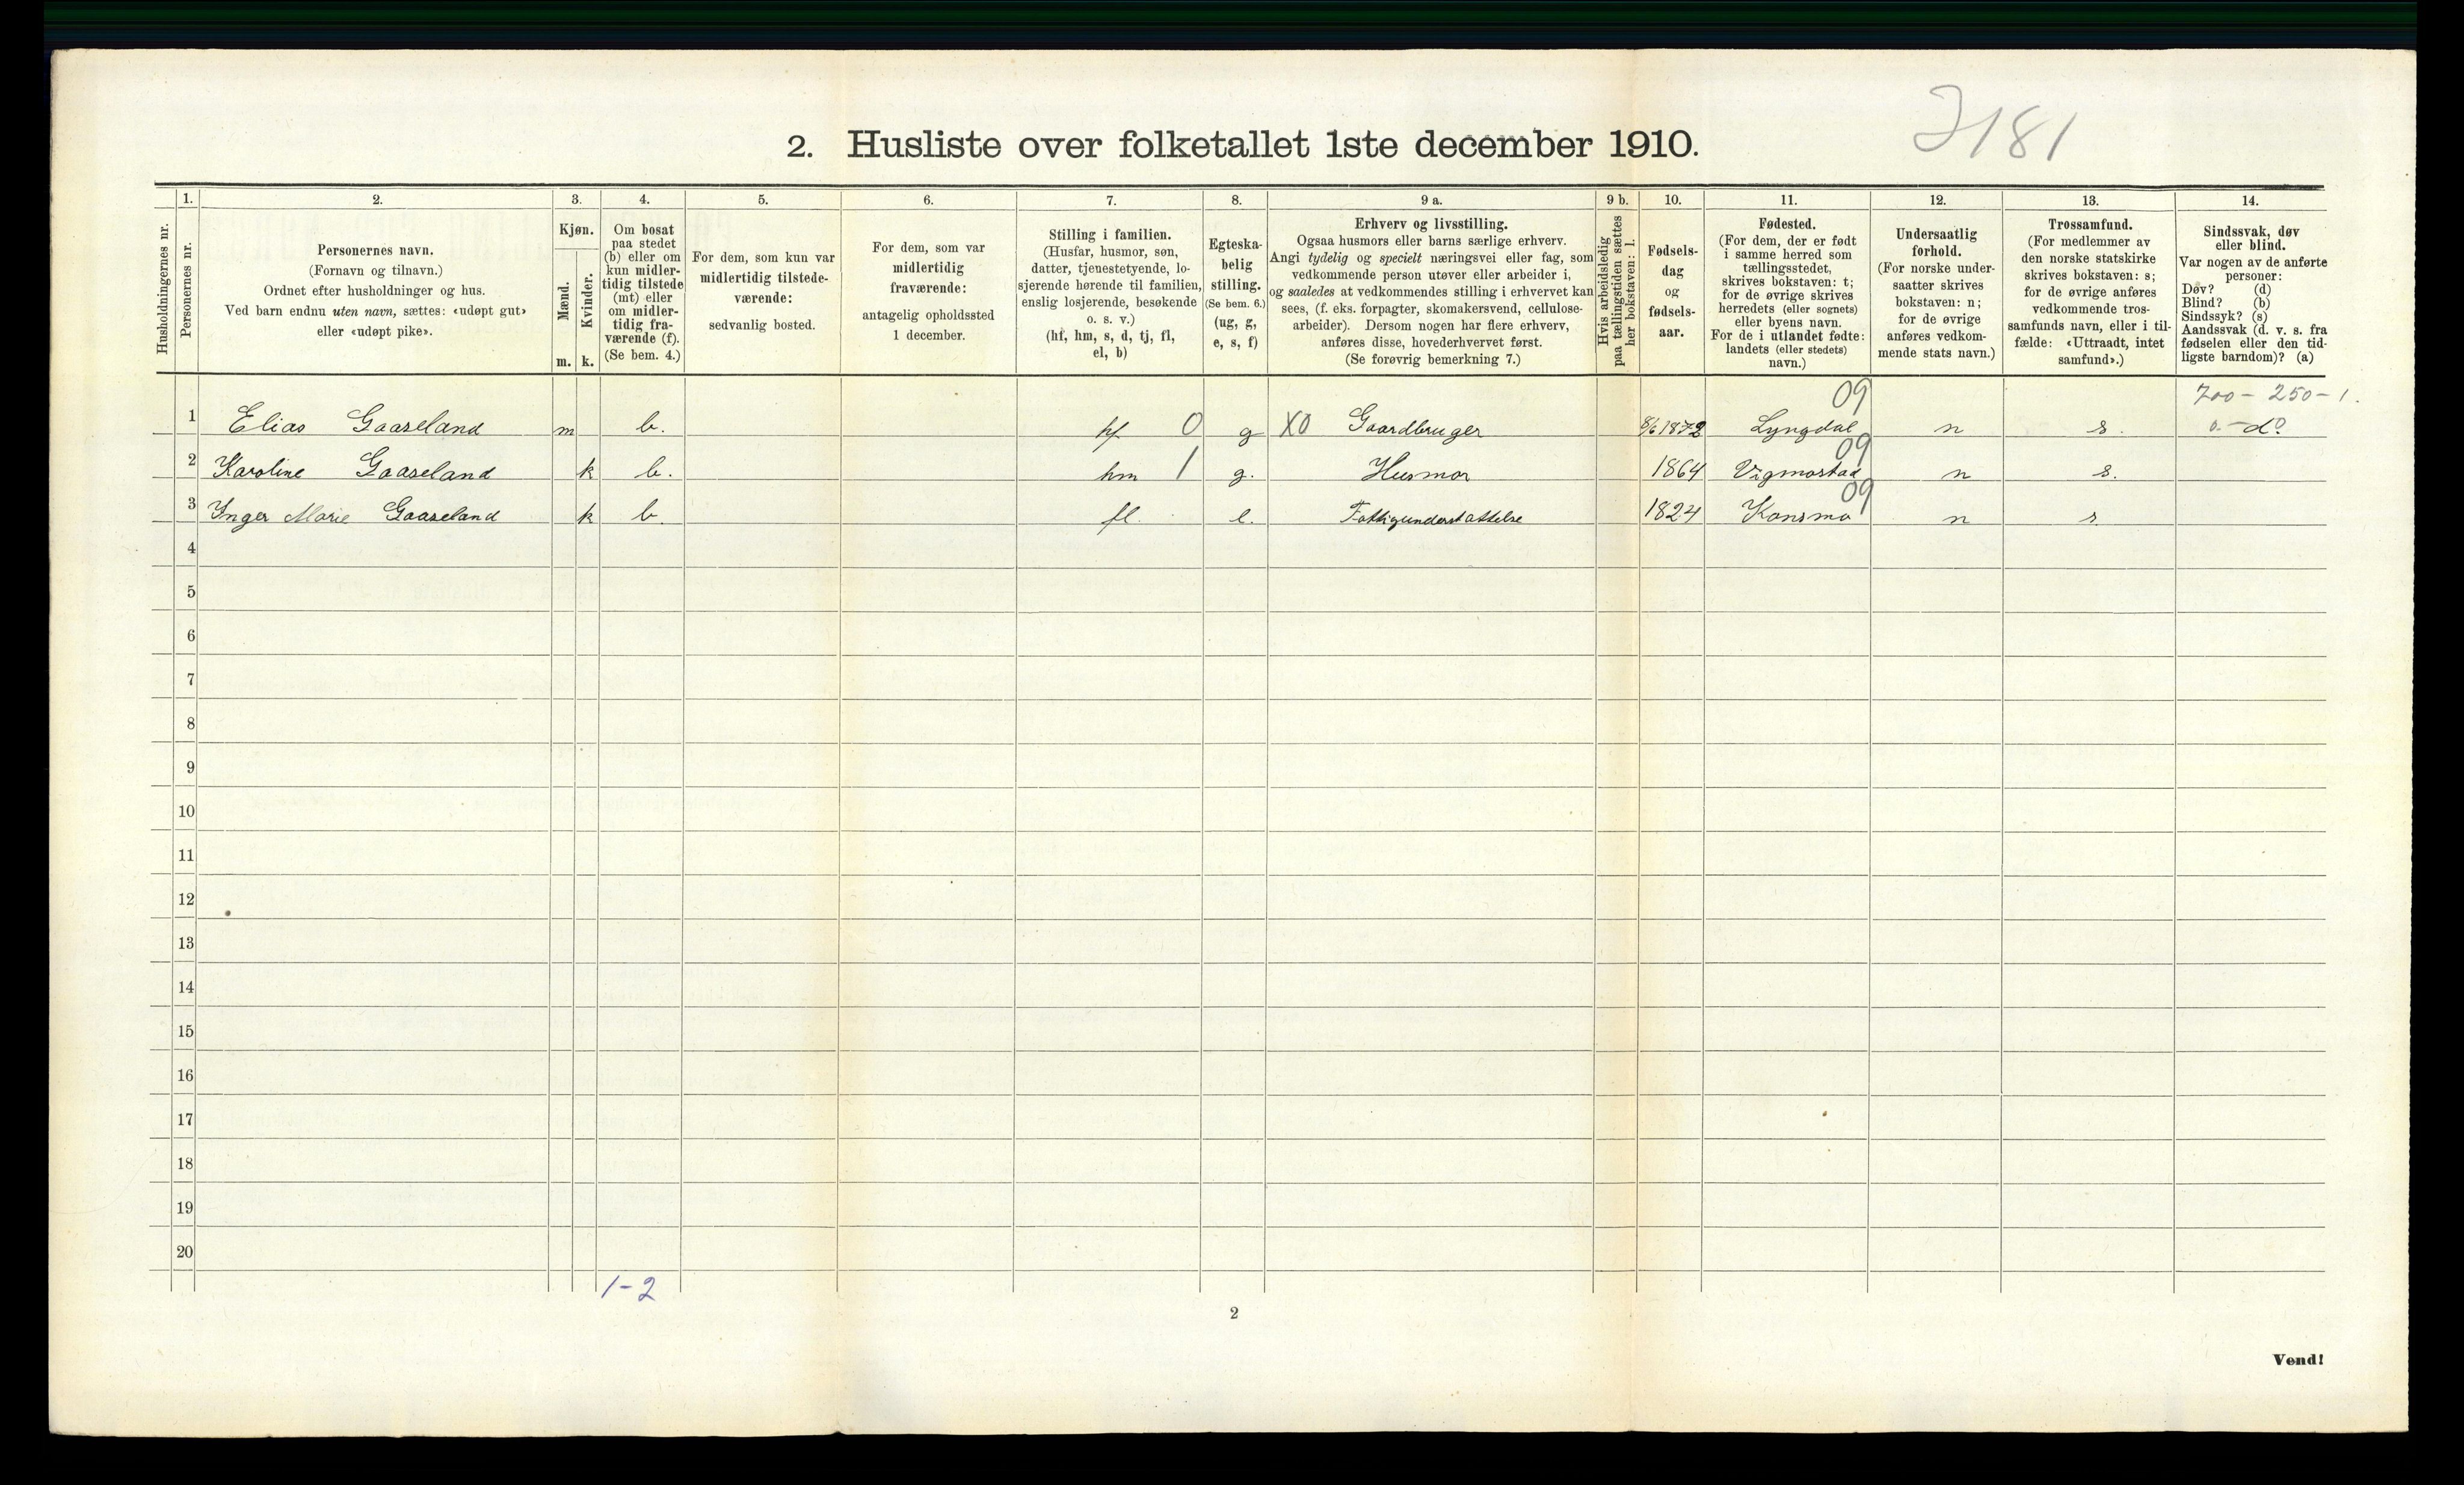 7181
2. Husliste over folketallet 1ste december 1910.
Husholdningernes nr.
1.
Personernes nr.
2.
Personernes navn.
(Fornavn og tilnavn.)
Ordnet efter husholdninger og hus.
Ved barn endnu uten navn, sættes: «udøpt gut»
eller «udøpt pike».
3.
Kjøn.
Mænd.
m.
Kvinder.
k.
4.
Om bosat
paa stedet
(b) eller om
kun midler-
tidig tilstede
(mt) eller
om midler-
tidig fra-
værende (f).
(Se bem. 4.)
5.
For dem, som kun var
midlertidig tilstede-
værende:
sedvanlig bosted.
6.
For dem, som var
midlertidig
fraværende:
antagelig opholdssted
1 december.
7.
Stilling i familien.
(Husfar, husmor, søn,
datter, tjenestetyende, lo-
sjerende hørende til familien,
enslig losjerende, besøkende
o. s. v.)
(hf, hm, s, d, tj, fl,
el, b)
8.
Egteska-
belig
stilling.
(Se bem. 6.)
(ug, g,
e, s, f)
9 a.
Erhverv og livsstilling.
Ogsaa husmors eller barns særlige erhverv.
Angi tydelig og specielt næringsvei eller fag, som
vedkommende person utøver eller arbeider i,
og saaledes at vedkommendes stilling i erhvervet kan
sees, (f. eks. forpagter, skomakersvend, cellulose-
arbeider). Dersom nogen har flere erhverv,
anføres disse, hovederhvervet først.
(Se forøvrig bemerkning 7.)
9 b.
Hvis arbeidsledig
paa tællingstiden sættes
her bokstaven: l.
10.
Fødsels-
dag
og
fødsels-
aar.
11.
Fødested.
(For dem, der er født
i samme herred som
tællingsstedet,
skrives bokstaven: t;
for de øvrige skrives
herredets (eller sognets)
eller byens navn.
For de i utlandet fødte:
landets (eller stedets)
navn.)
12.
Undersaatlig
forhold.
(For norske under-
saatter skrives
bokstaven: n;
for de øvrige
anføres vedkom-
mende stats navn.)
13.
Trossamfund.
(For medlemmer av
den norske statskirke
skrives bokstaven: s;
for de øvrige anføres
vedkommende tros-
samfunds navn, eller i til-
fælde: «Uttraadt, intet
samfund».)
14.
Sindssvak, døv
eller blind.
Var nogen av de anførte
personer:
Døv? (d)
Blind? (b)
Sindssyk? (s)
Aandssvak (d. v. s. fra
fødselen eller den tid-
ligste barndom)? (a)
09 700 - 250 - 1.
1 Elias Gaaseland m b. hf 0 g X0 Gaardbruger 8/6 1872 Lyngdal n s. 0. - d?
09
2 Karoline Gaaseland k b. hm 1 g. Husmor 1864 Vigmostad n s.
09
3 Inger Marie Gaaseland k b. fl. e. Fattigunderstøttelse 1824 Konsmo n s.
4
5
6
7
8
9
10
11
12
13
14
15
16
17
18
19
20
1-2
2
Vend!